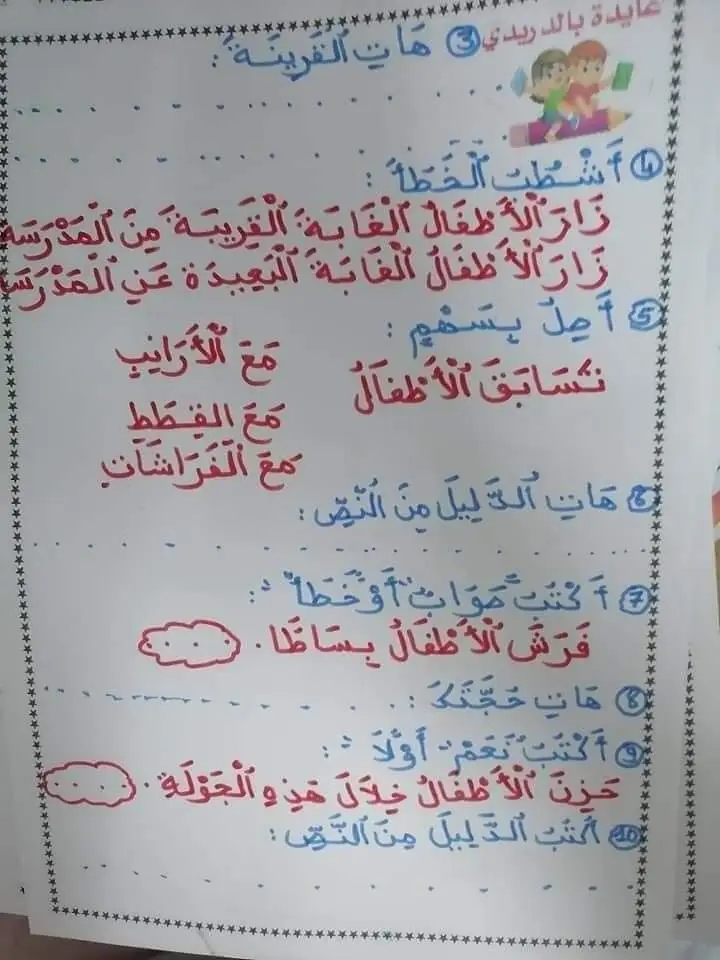 عايدة بالدريدي
③ هَاتِ الْقَرِينَةَ :
④ أَشْطُبُ الْخَطَأَ :
زَارَ الْأَطْفَالُ الْغَابَةَ الْقَرِيبَةَ مِنَ الْمَدْرَسَةِ
زَارَ الْأَطْفَالُ الْغَابَةَ الْبَعِيدَةَ عَنِ الْمَدْرَسَةِ
⑤ أَصِلُ بِسَهْمٍ :
مَعَ الْأَرَانِبِ
تَسَابَقَ الْأَطْفَالُ
مَعَ القِطَطِ
مَعَ الْفَرَاشَاتِ
⑥ هَاتِ الدَّلِيلَ مِنَ النَّصِّ :
⑦ أَكْتُبُ "صَوَابٌ" أَوْ "خَطَأٌ" :
فَرَشَ الْأَطْفَالُ بِسَاطًا .
⑧ هَاتِ حُجَّتَكَ :
⑨ أَكْتُبُ "نَعَمْ" أَوْ "لَا" :
حَزِنَ الْأَطْفَالُ خِلَالَ هَذِهِ الْجَوْلَةِ .
⑩ أَكْتُبُ الدَّلِيلَ مِنَ النَّصِّ :